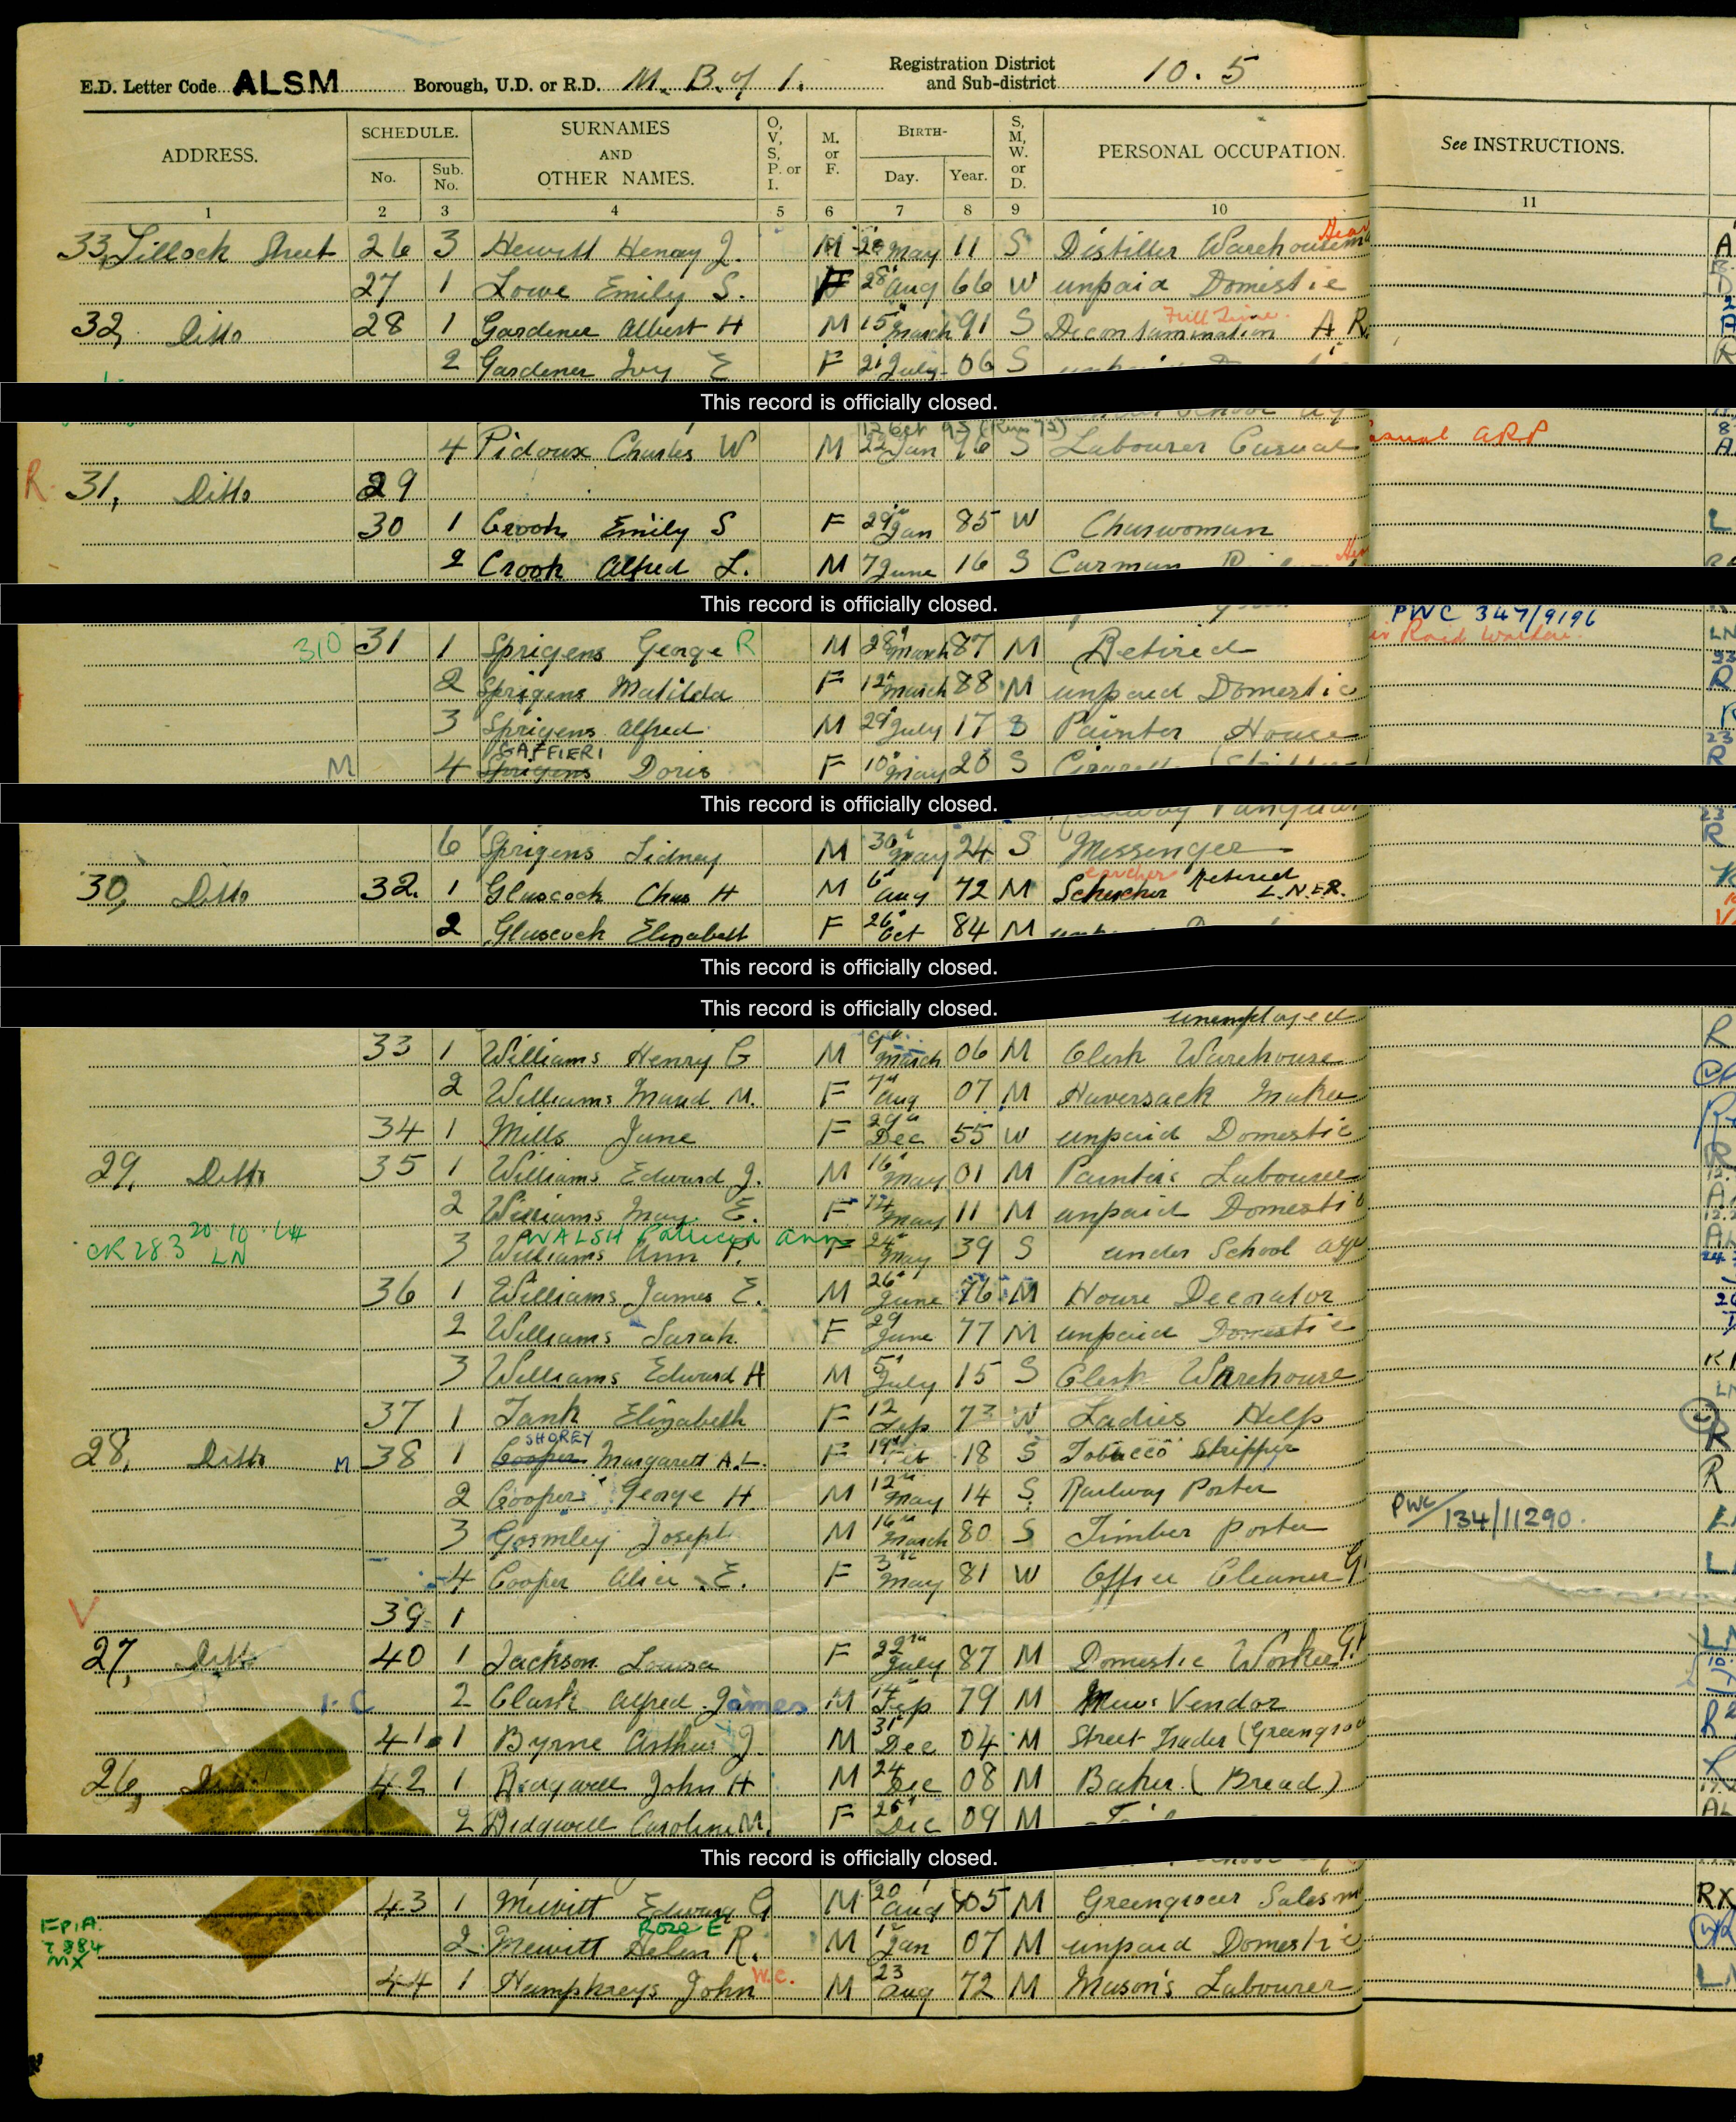 E.D. Letter Code ALSM Borough, U.D. or R.D. M. B. of I. Registration District and Sub-district 10. 5
ADDRESS. SCHEDULE. No. Sub. No. SURNAMES AND OTHER NAMES. O, V, S, P. or I. M. or F. BIRTH- Day. Year. S, M, W. or D. PERSONAL OCCUPATION. See INSTRUCTIONS.
1 2 3 4 5 6 7 8 9 10 11
33, Tillock Street 26 3 Hewitt Henry J. M May 11 S Distiller Warehousema
27 1 Lowe Emily S. F 28 Aug 66 W unpaid Domestic
Full Time
32, Ditto 28 1 Gardener Albert H M 15 March 91 S Decontamination A R.
2 Gardener Ivy E F 21 July 06 S
This record is officially closed.
4 Pidoux Charles W M 22 Jan 96 S Labourer Casual asual ARP
R. 31, Ditto 29
30 1 Crook Emily S F 29 Jan 85 W Charwoman
2 Crook Alfred L. M 7 June 16 S Carman
This record is officially closed.
PWC 347/9196
310 31 1 Sprigens George R M 28 March 87 M Retired
2 Sprigens Matilda F 12 March 88 M unpaid Domestic
3 Sprigens Alfred M 29 July 17 S Painter House
GAFFIERI
M 4 Sprigens Doris F 10 May 20 S
This record is officially closed.
6 Sprigens Sidney M 30 May 24 S Messenger
30, Ditto 32. 1 Gluscock Chas H M 6 Aug 72 M Retired L.N.E.R.
2 Gluscock Elizabeth F 26 Oct 84 M
This record is officially closed.
This record is officially closed.
unemployed
33 1 Williams Henry G M 9 March 06 M Clerk Warehouse
2 Williams Maud. M. F 7 Aug 07 M Haversack Maker
34 1 Mills Jane F 29 Dec 55 W unpaid Domestic
29, Ditto 35 1 Williams Edward J. M 16 May 01 M Painters Labourer
2 Williams May E. F May 11 M unpaid Domestic
WALSH Patricia Ann
CR 283 20.10 LN 3 Williams Ann P. F 24 May 39 S under School age
36 1 Williams James E. M 26 June 76 M House Decorator
2 Williams Sarah F 29 June 77 M unpaid Domestic
3 Williams Edward H M 5 July 15 S Clerk Warehouse
37 1 Tank Elizabeth F 12 Sep 73 W Ladies Help
SHOREY
28, Ditto M 38 1 Cooper Margarett A.L. F 19 Feb 18 S Tobacco Stripper
2 Cooper George H. M 12 May 14 S Railway Porter
3 Gormley Joseph M 16 March 80 S Timber Porter PWC/134/11290.
4 Cooper Alice E. F 3 May 81 W Office Cleaner
V 39 1
27, Ditto 40 1 Jackson Louisa F 22 July 87 M Domestic Worker
2 Clark Alfred James M 14 Sep 79 M News Vendor
41 1 Byrne Arthur J. M 31 Dec 04 M Street Trader (Greengroc
26, 42 1 Ridgwell John H M 24 Dec 08 M Baker (Bread)
2 Ridgwell Caroline M. F 25 Dec 09 M
This record is officially closed.
43 1 Mewitt Edward G M 20 Aug 05 M Greengrocer Salesm
Rose E
2 Mewitt Helen R. M 1 Jan 07 M unpaid Domestic
44 1 Humphreys John W.C. M 23 Aug 72 M Mason's Labourer